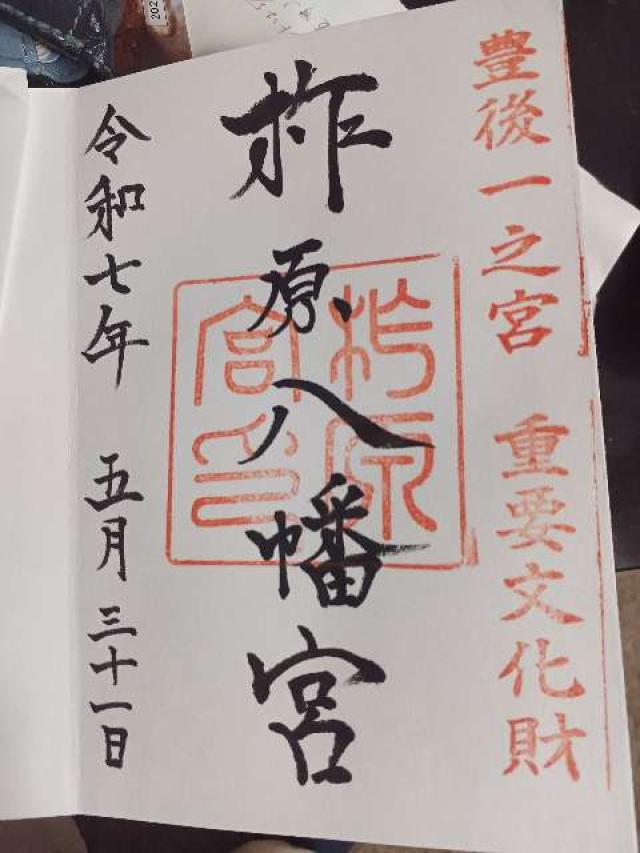 豊後一之宮 重要文化財
柞原八幡宮
柞原宮印
令和七年 五月 三十一日
202